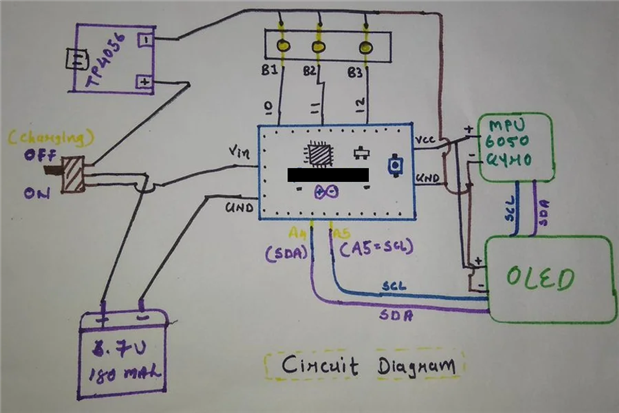 TP4056
-
+
B1
B2
B3
10
11
12
(charging)
OFF
ON
Vin
GND
VCC
GND
A4
A5
(SDA)
(A5=SCL)
MPU
6050
GYMO
+
-
SCL
SDA
SCL
SDA
+
-
OLED
+
-
3.7V
180 MAh
Circuit Diagram